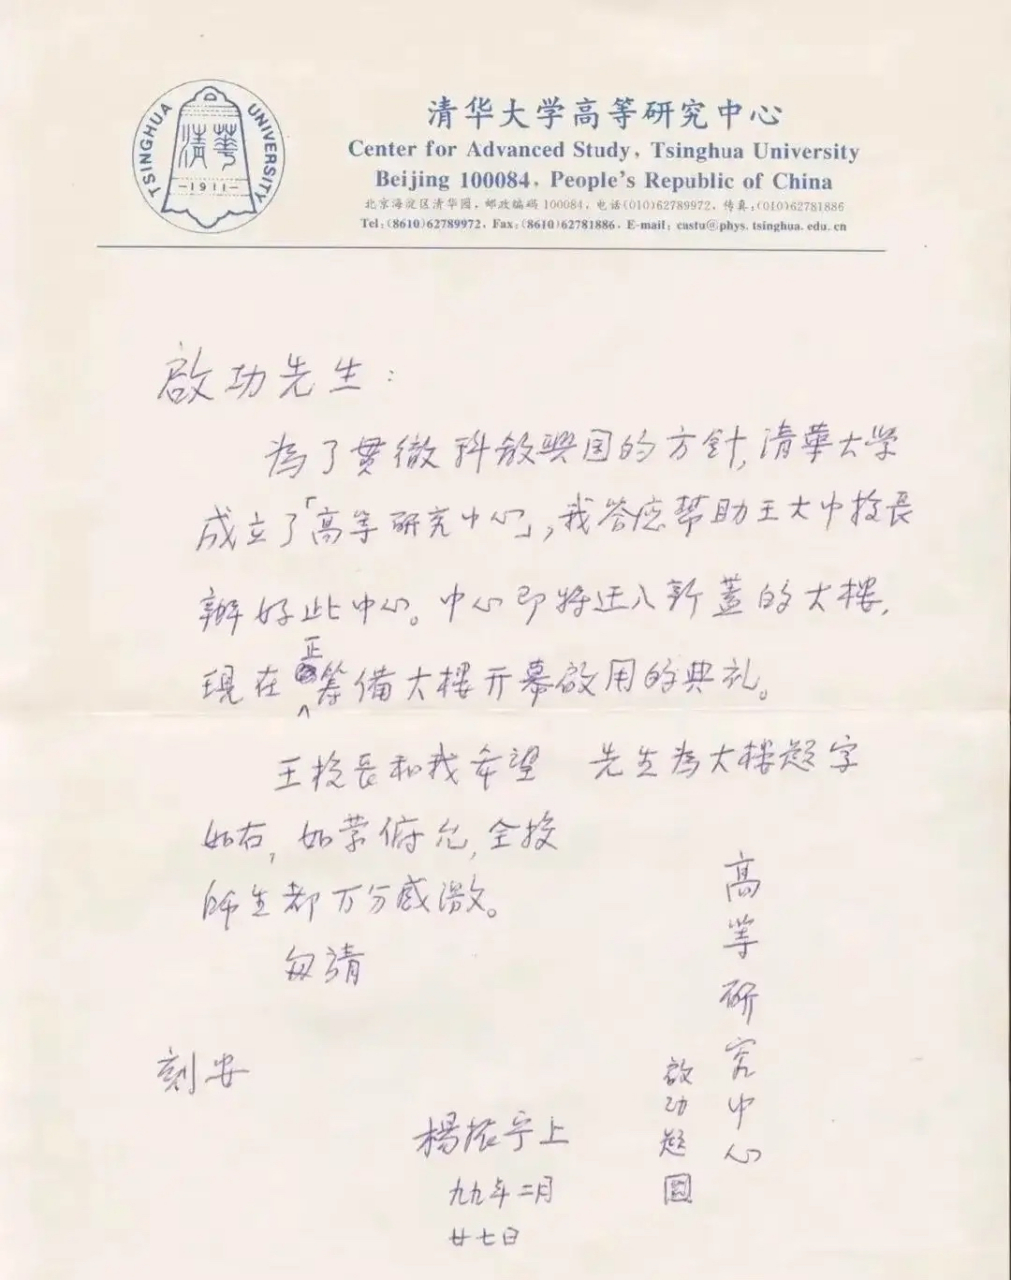 TSINGHUA UNIVERSITY
清華
-1911-
清华大学高等研究中心
Center for Advanced Study, Tsinghua University
Beijing 100084, People's Republic of China
北京海淀区清华园,邮政编码100084,电话(010)62789972,传真:(010)62781886
Tel:(8610)62789972, Fax:(8610)62781886, E-mail: castu@phys.tsinghua.edu.cn
啟功先生:
為了貫徹科教興国的方針,清華大学
成立了「高等研究中心」,我答应幇助王大中校長
辦好此中心。中心即将迁入新蓋的大樓,
現在正筹備大樓开幕啟用的典礼。
王校長和我希望 先生為大樓题字
如右,如蒙俯允,全校
师生都万分感激。
匆请
刻安
楊振宁上
九九年二月
廿七日
高等研究中心
啟功题